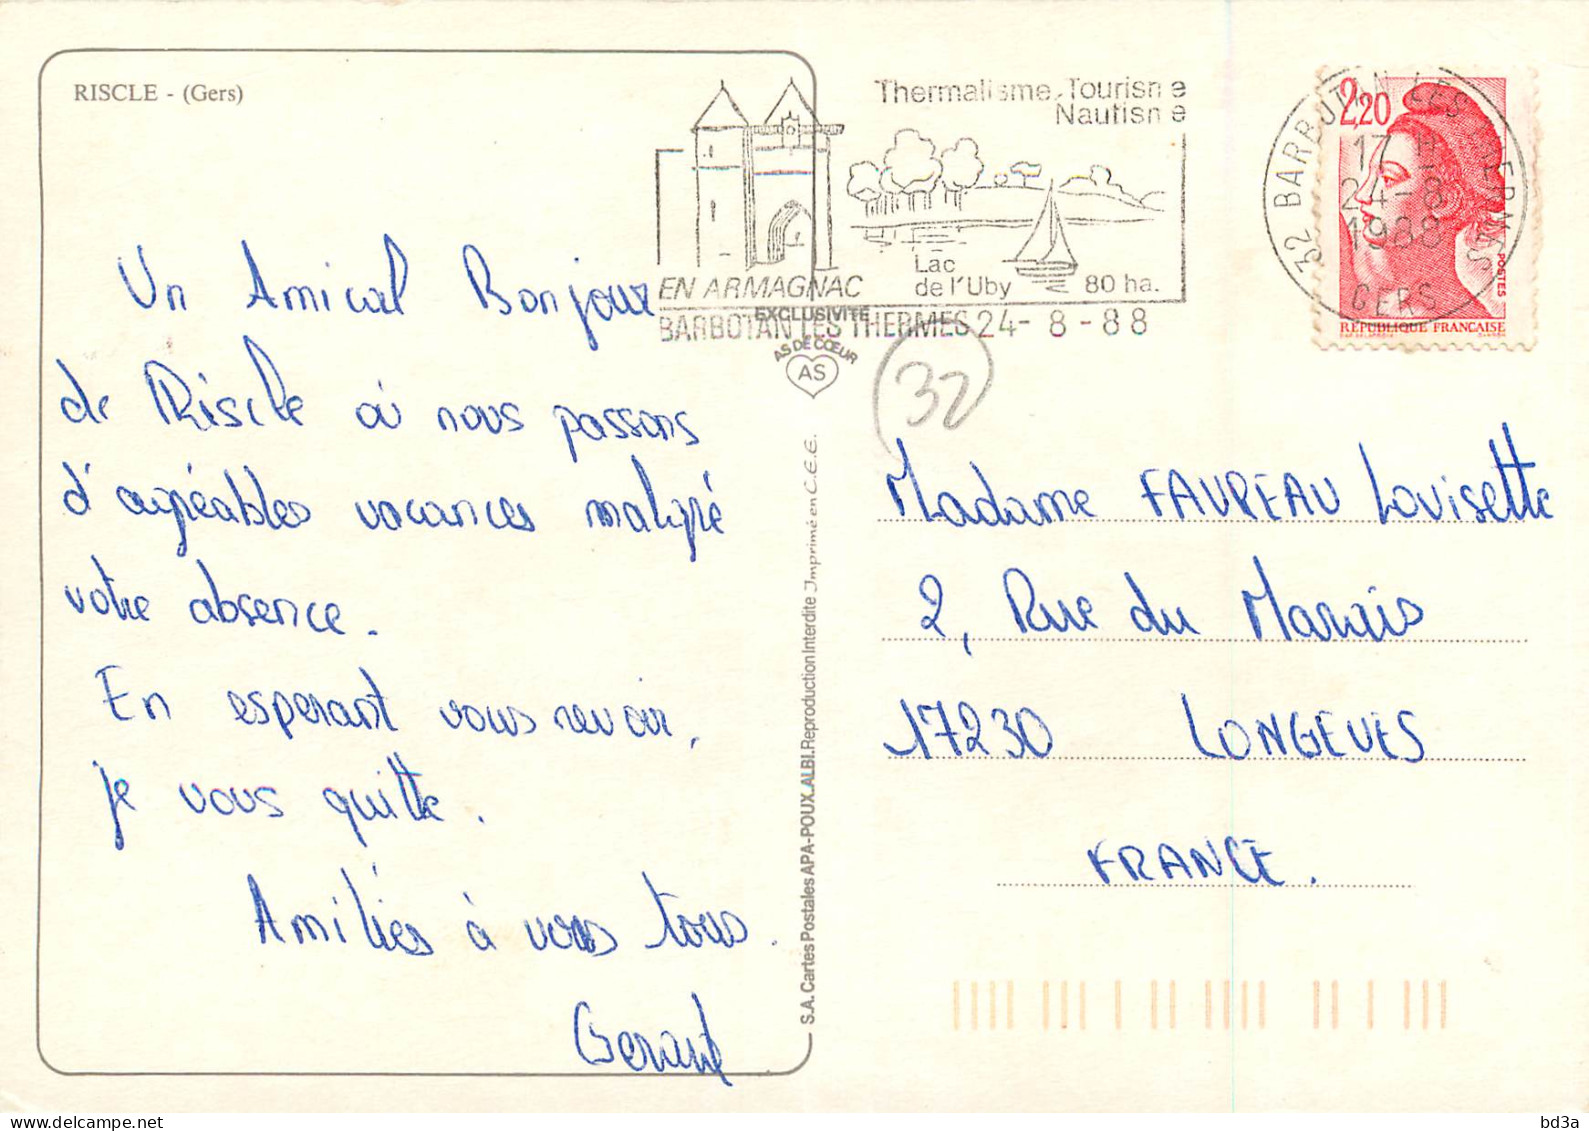 RISCLE - (Gers)
Un Amical Bonjour
de Riscle où nous passons
d'agréables vacances malgré
votre absence.
En esperant vous revoir,
je vous quitte.
Amitiés à vous tous.
Gerard
Thermalisme, Tourisme
Nautisme
Lac
de l'Uby 80 ha.
EN ARMAGNAC
BARBOTAN LES THERMES 24-8-88
EXCLUSIVITÉ
AS DE CŒUR
AS
32
S.A. Cartes Postales APA-POUX. ALBI. Reproduction Interdite Imprimé en C.E.E.
2,20
32 BARBOTAN LES THERMES
17 H
24-8
1988
GERS
POSTES
RÉPUBLIQUE FRANÇAISE
Madame FAVREAU Louisette
2, Rue du Marais
17230 LONGEVES
FRANCE.
bd3a